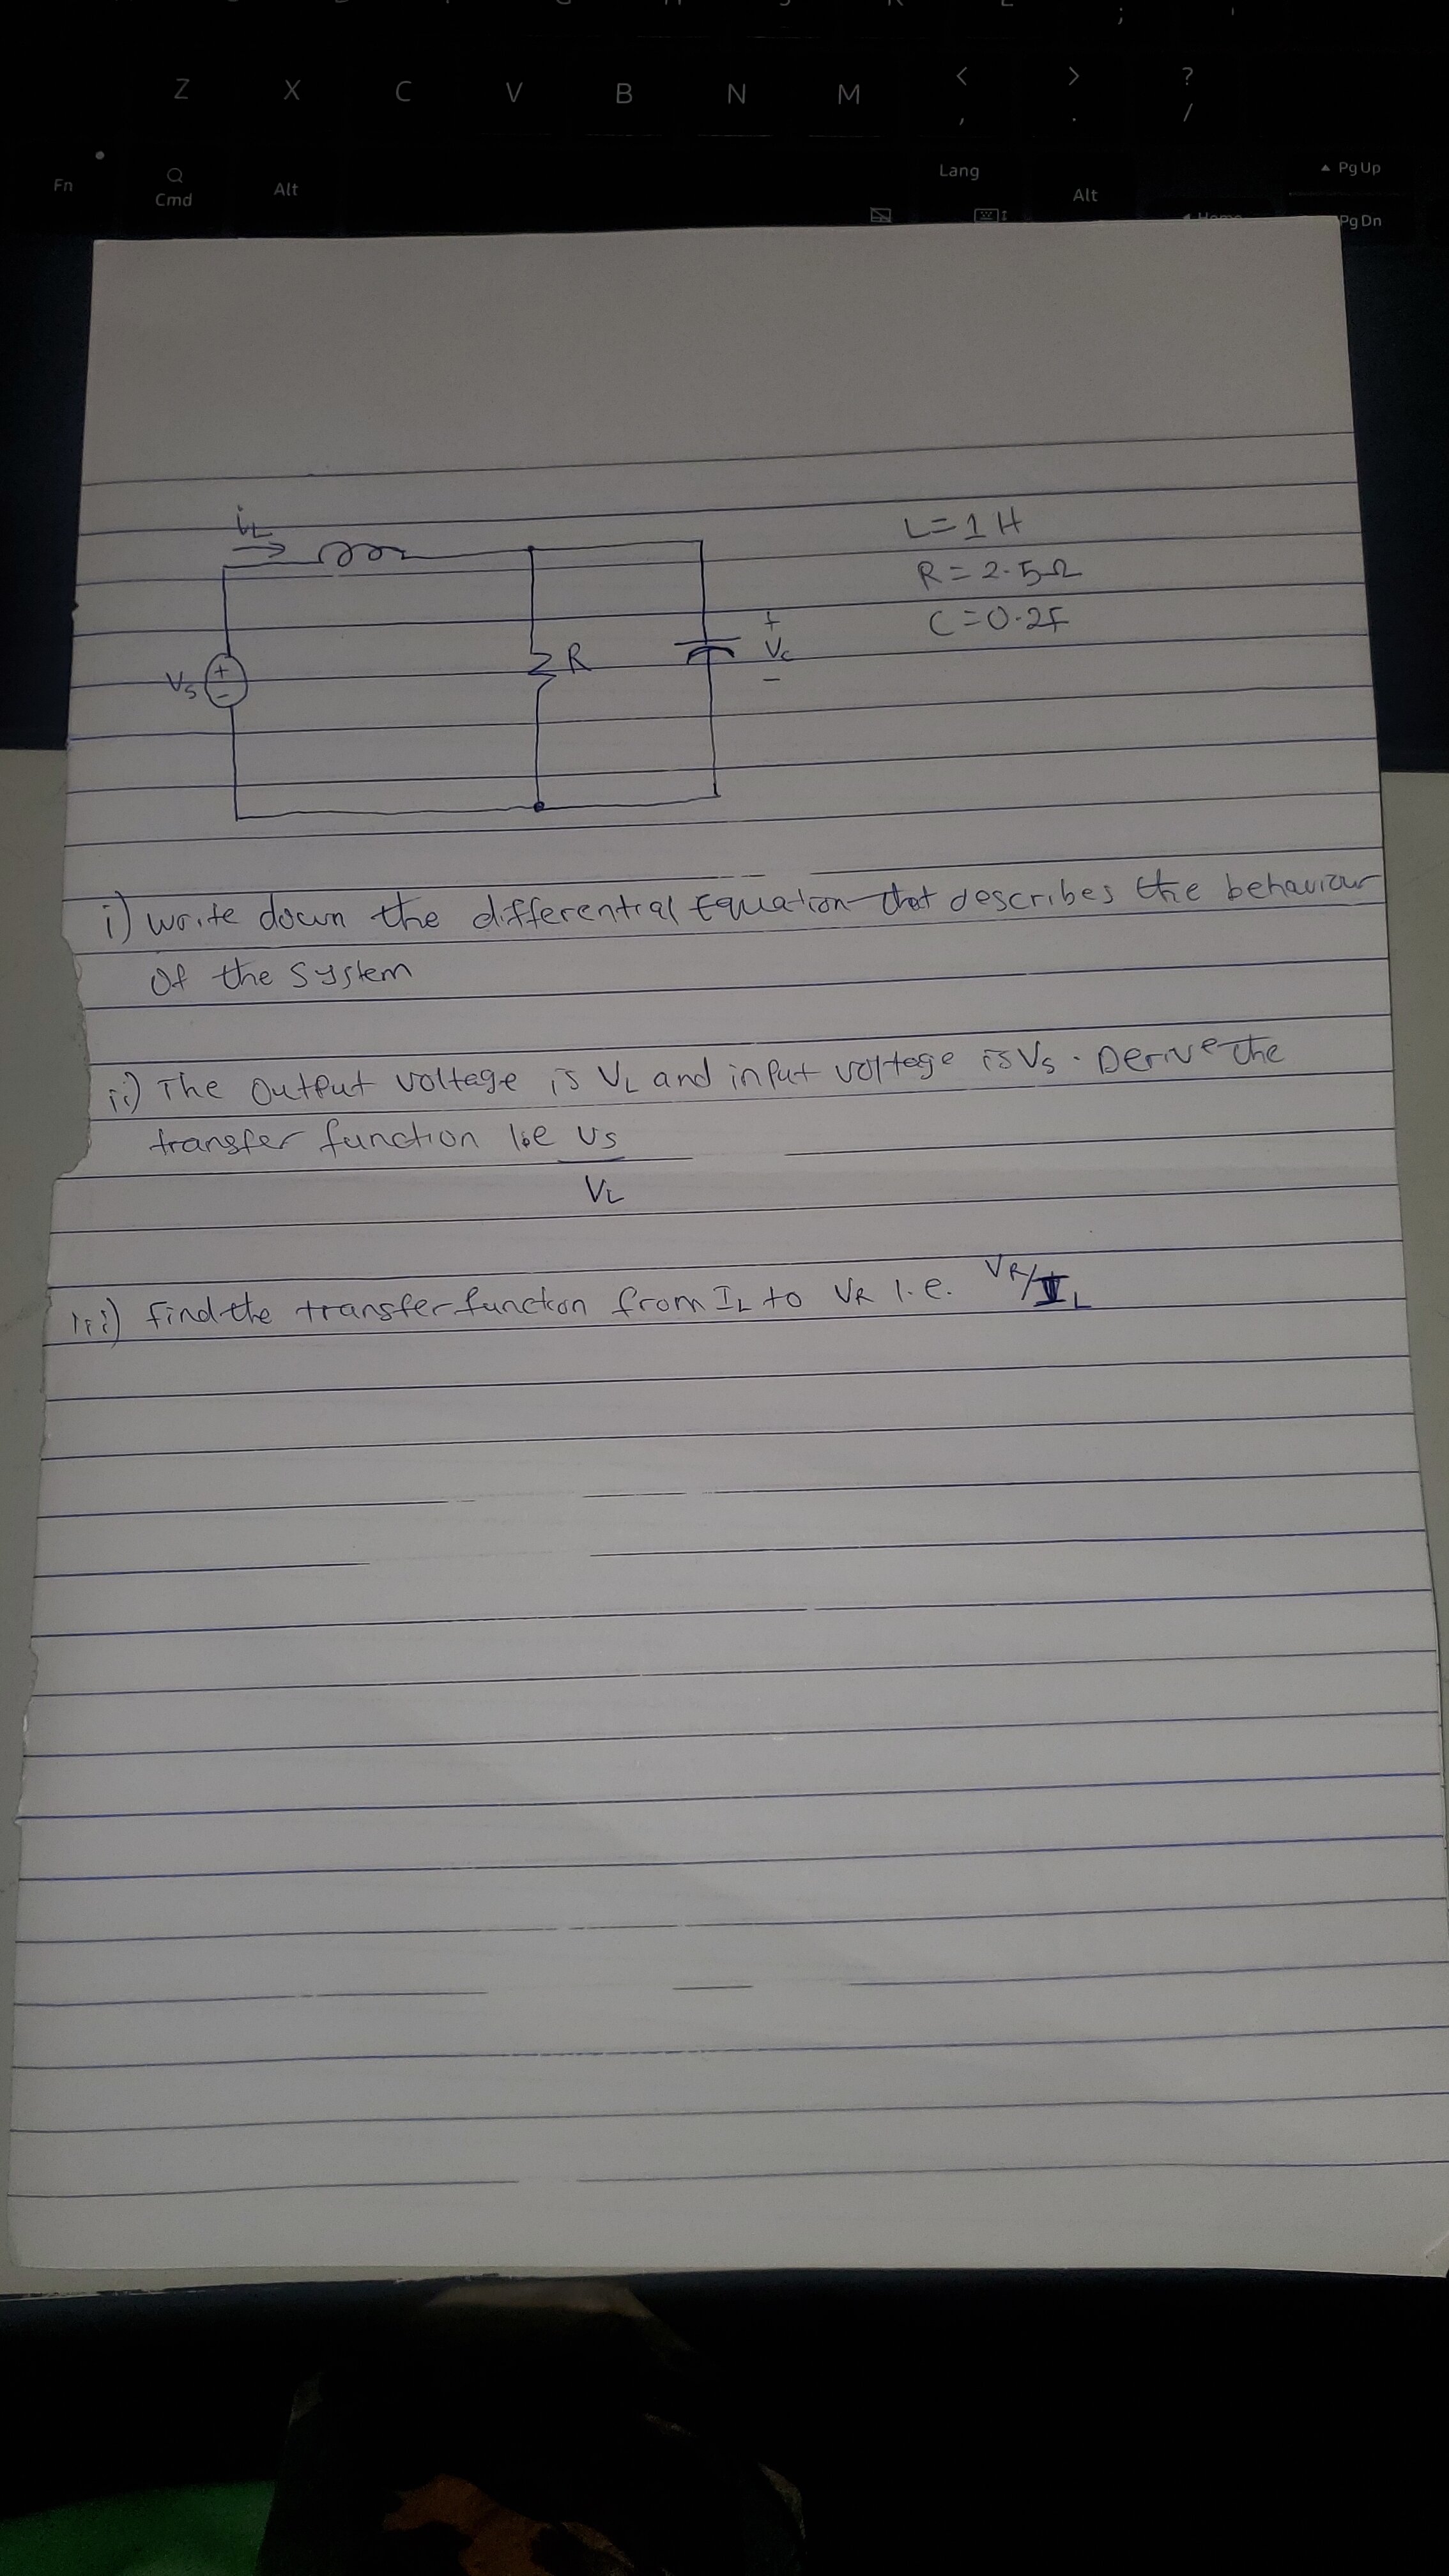 Z X C V B N M < , > . ? /
Fn Cmd Alt Lang Alt Home Pg Up Pg Dn
iL
L=1H
R=2.5Ω
C=0.2F
Vs + - R + Vc -
i) write down the differential Equation that describes the behaviour
of the system
ii) The output voltage is VL and input voltage is Vs. Derive the
transfer function i.e Vs
VL
iii) find the transfer function from IL to VR i.e. VR/IL